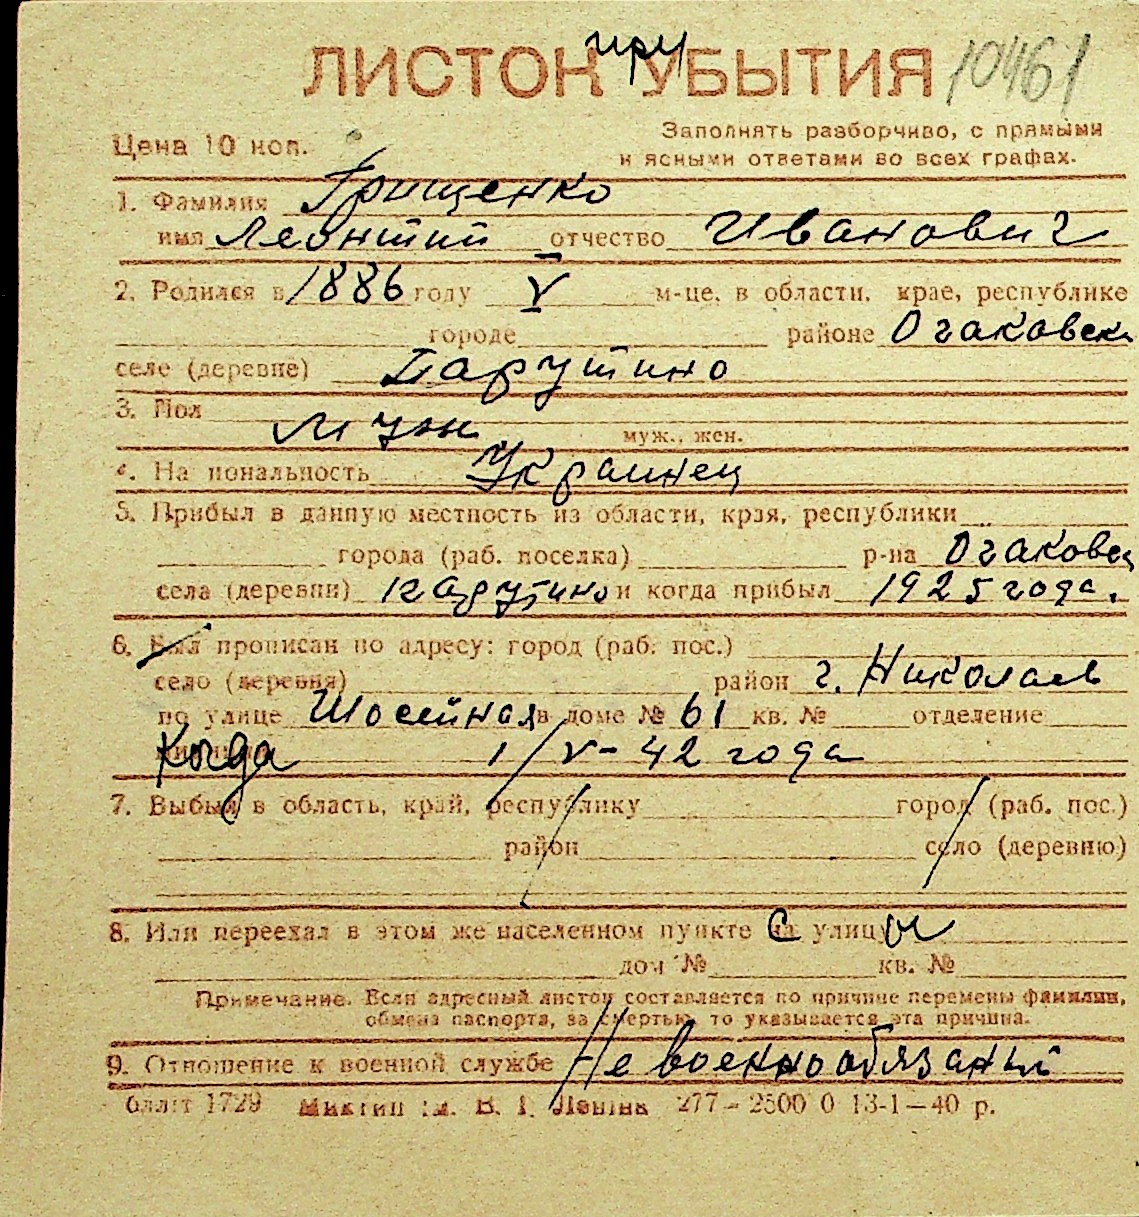 при
ЛИСТОК УБЫТИЯ 10461
Цена 10 коп.
Заполнять разборчиво, с прямыми
и ясными ответами во всех графах.
1. Фамилия Грищенко
имя Леонтий отчество Иванович
2. Родился в 1886 году V м-це, в области, крае, республике
городе районе Очаковск
селе (деревне) Парутино
3. Пол муж
муж., жен.
4. Национальность Украинец
5. Прибыл в данную местность из области, края, республики
города (раб. поселка) р-на Очаковск
села (деревни) Парутино и когда прибыл 1925 года.
6. Был прописан по адресу: город (раб. пос.)
село (деревня) район г. Николаев
по улице Шосейная в доме № 61 кв. № отделение
Когда 1/V-42 года
7. Выбыл в область, край, республику город (раб. пос.)
район село (деревню)
8. Или переехал в этом же населенном пункте с улицы
дом № кв. №
Примечание. Если адресный листок составляется по причине перемены фамилии,
обмена паспорта, за смертью, то указывается эта причина.
9. Отношение к военной службе Не военнообязаный
1729 В. І. Леніна 277-2500 0 13-1-40 р.